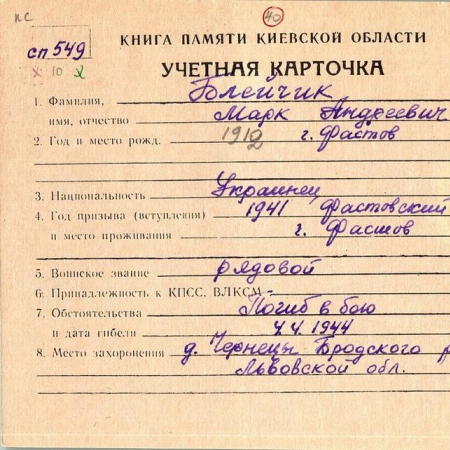 ПС
40
сп 549
х 10 х
КНИГА ПАМЯТИ КИЕВСКОЙ ОБЛАСТИ
УЧЕТНАЯ КАРТОЧКА
1. Фамилия, Блейчик
имя, отчество Марк Андреевич
2. Год и место рожд. 1912 г. Фастов
3. Национальность Украинец
4. Год призыва (вступления) 1941 Фастовский
и место проживания г. Фастов
5. Воинское звание рядовой
6. Принадлежность к КПСС, ВЛКСМ -
7. Обстоятельства Погиб в бою
и дата гибели 4.4.1944
8. Место захоронения д. Чернецы Бродского р
Львовской обл.